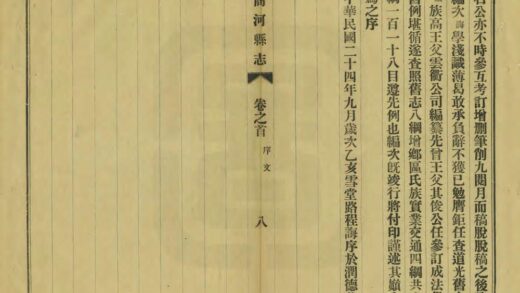 君公亦不時參互考訂增删筆創九閱月而稿脫脫稿之後
編次誨學淺識薄曷敢承負辭不獲已勉膺鉅任查道光舊
族高王父雲衢公司編纂先曾王父其俊公任參訂成法
舊例堪循遂查照舊志八綱增鄉區氏族實業交通四綱共
綱一百一十八目遵先例也編次既竣行將付印謹述其巔
為之序
中華民國二十四年九月歲次乙亥雪堂路程誨序於潤德
商河縣志
卷之首
序文
八